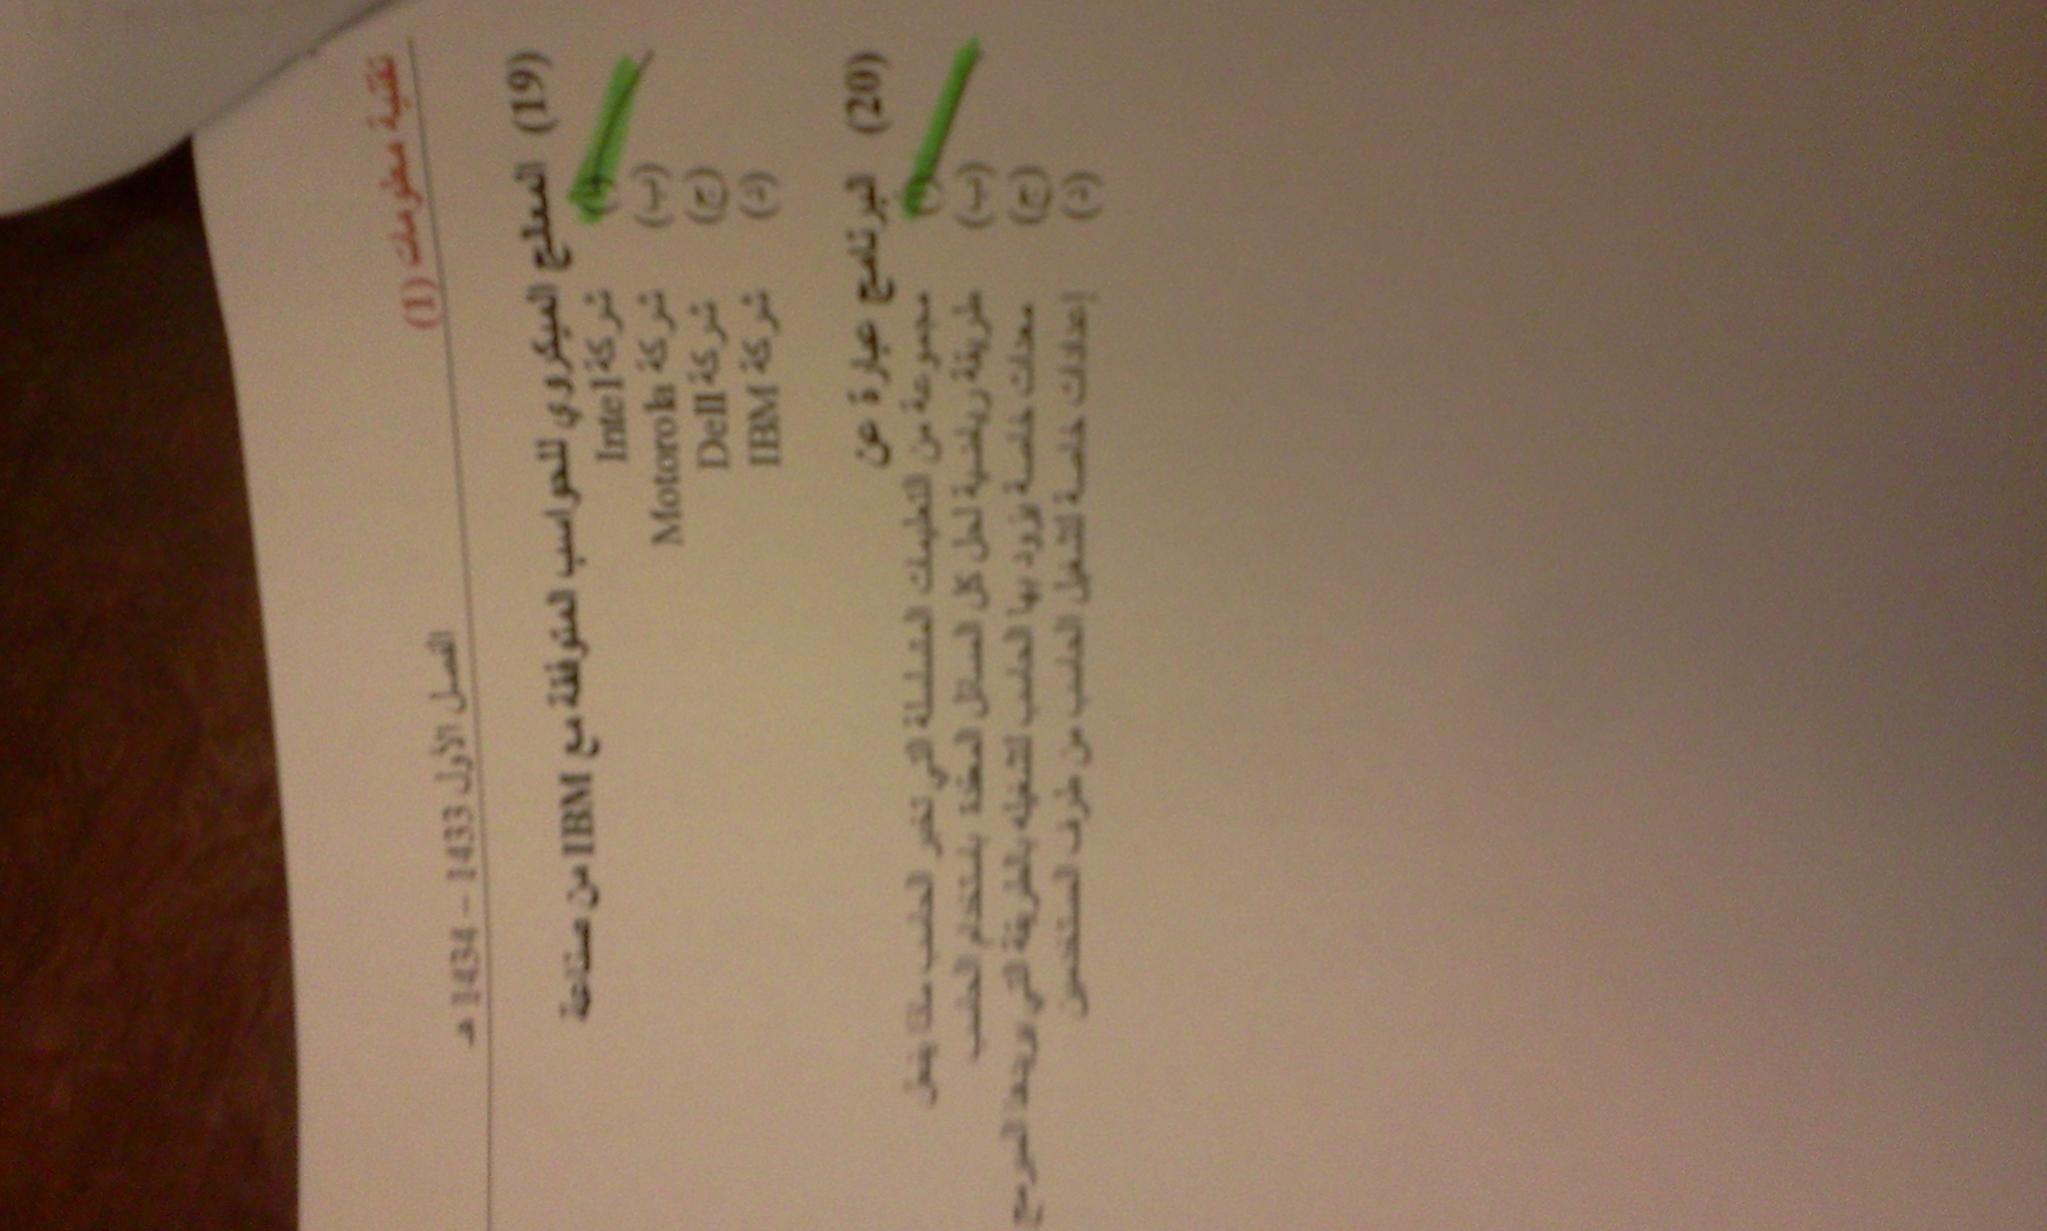 تقنية معلومات (1)
الفصل الأول 1433 – 1434 هـ
(19) المعالج الميكروي للحواسب المتوافقة مع IBM من صناعة
(أ) شركة Intel
(ب) شركة Motorola
(ج) شركة Dell
(د) شركة IBM
(20) البرنامج عبارة عن
(أ) مجموعة من التعليمات المتسلسلة التي تخبر الحاسب ماذا يفعل
(ب) طريقة رياضية لحل كل المسائل المعقدة باستخدام الحاسب
(ج) معدات خاصة يزود بها الحاسب لتشغيله بالطريقة التي يريدها المبرمج
(د) إعدادات خاصة لتشغيل الحاسب من طرف المستخدمين